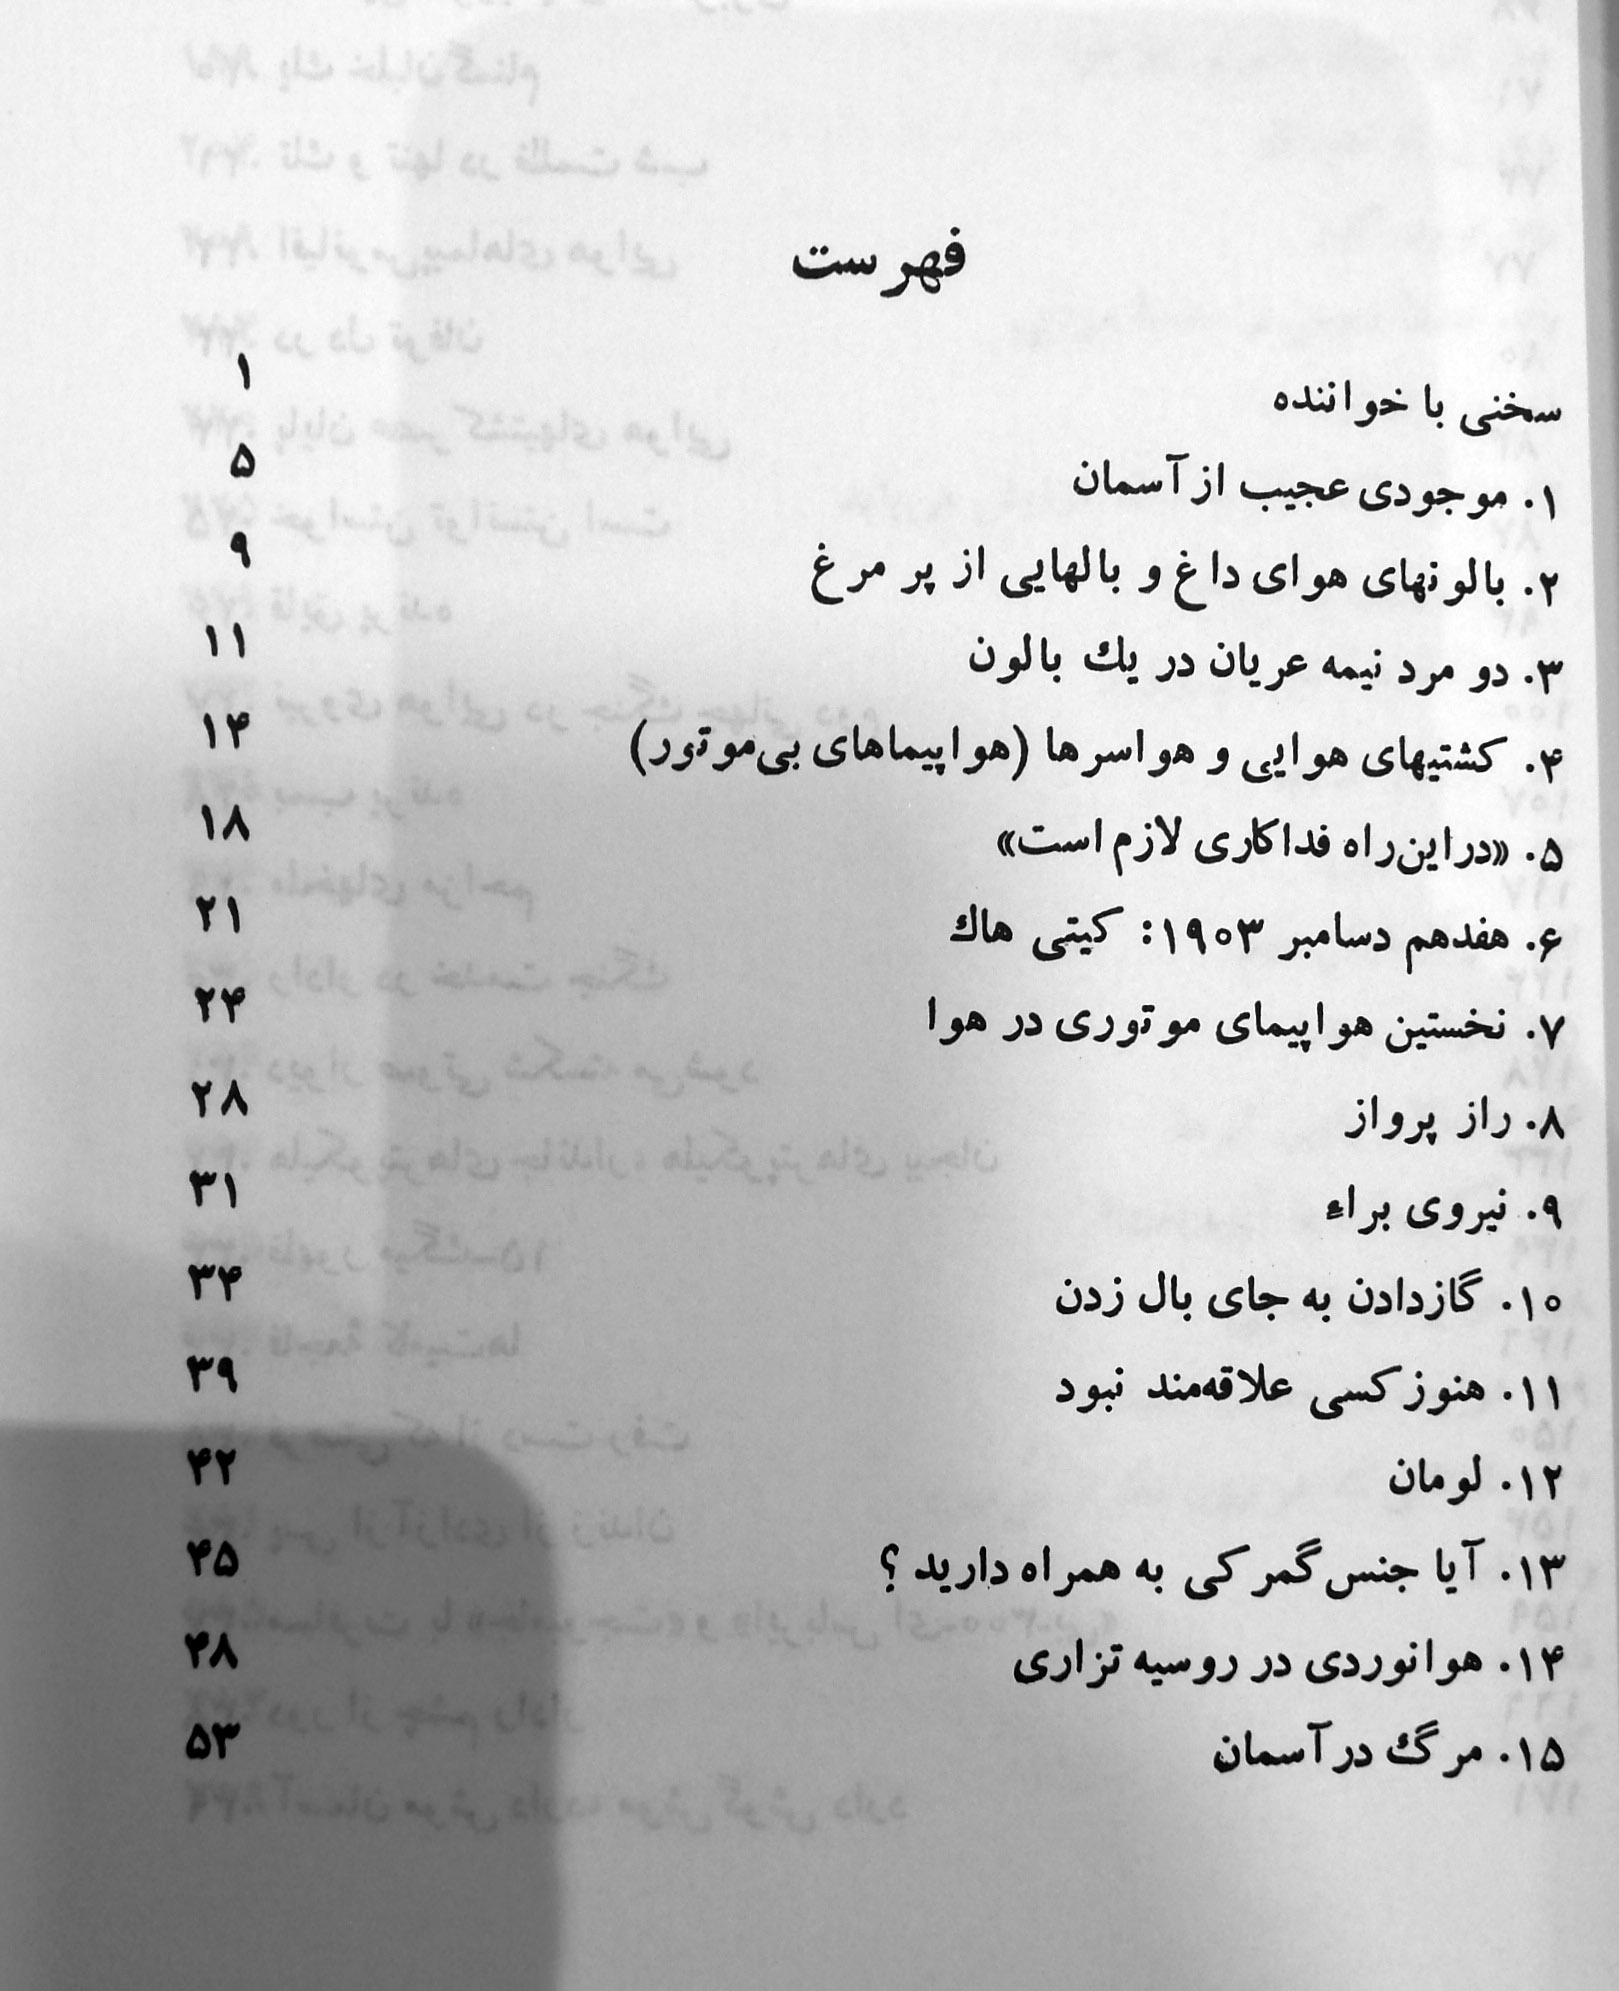 فهرست
سخنی با خواننده ۱
۱. موجودی عجیب از آسمان ۵
۲. بالونهای هوای داغ و بالهایی از پر مرغ ۹
۳. دو مرد نیمه عریان در یك بالون ۱۱
۴. کشتیهای هوایی و هواسرها (هواپیماهای بی‌موتور) ۱۴
۵. «دراین‌راه فداکاری لازم است» ۱۸
۶. هفدهم دسامبر ۱۹۰۳: کیتی هاك ۲۱
۷. نخستین هواپیمای موتوری در هوا ۲۴
۸. راز پرواز ۲۸
۹. نیروی براء ۳۱
۱۰. گازدادن به جای بال زدن ۳۴
۱۱. هنوز کسی علاقه‌مند نبود ۳۹
۱۲. لومان ۴۲
۱۳. آیا جنس گمرکی به همراه دارید ؟ ۴۵
۱۴. هوانوردی در روسیه تزاری ۴۸
۱۵. مرگ در آسمان ۵۳